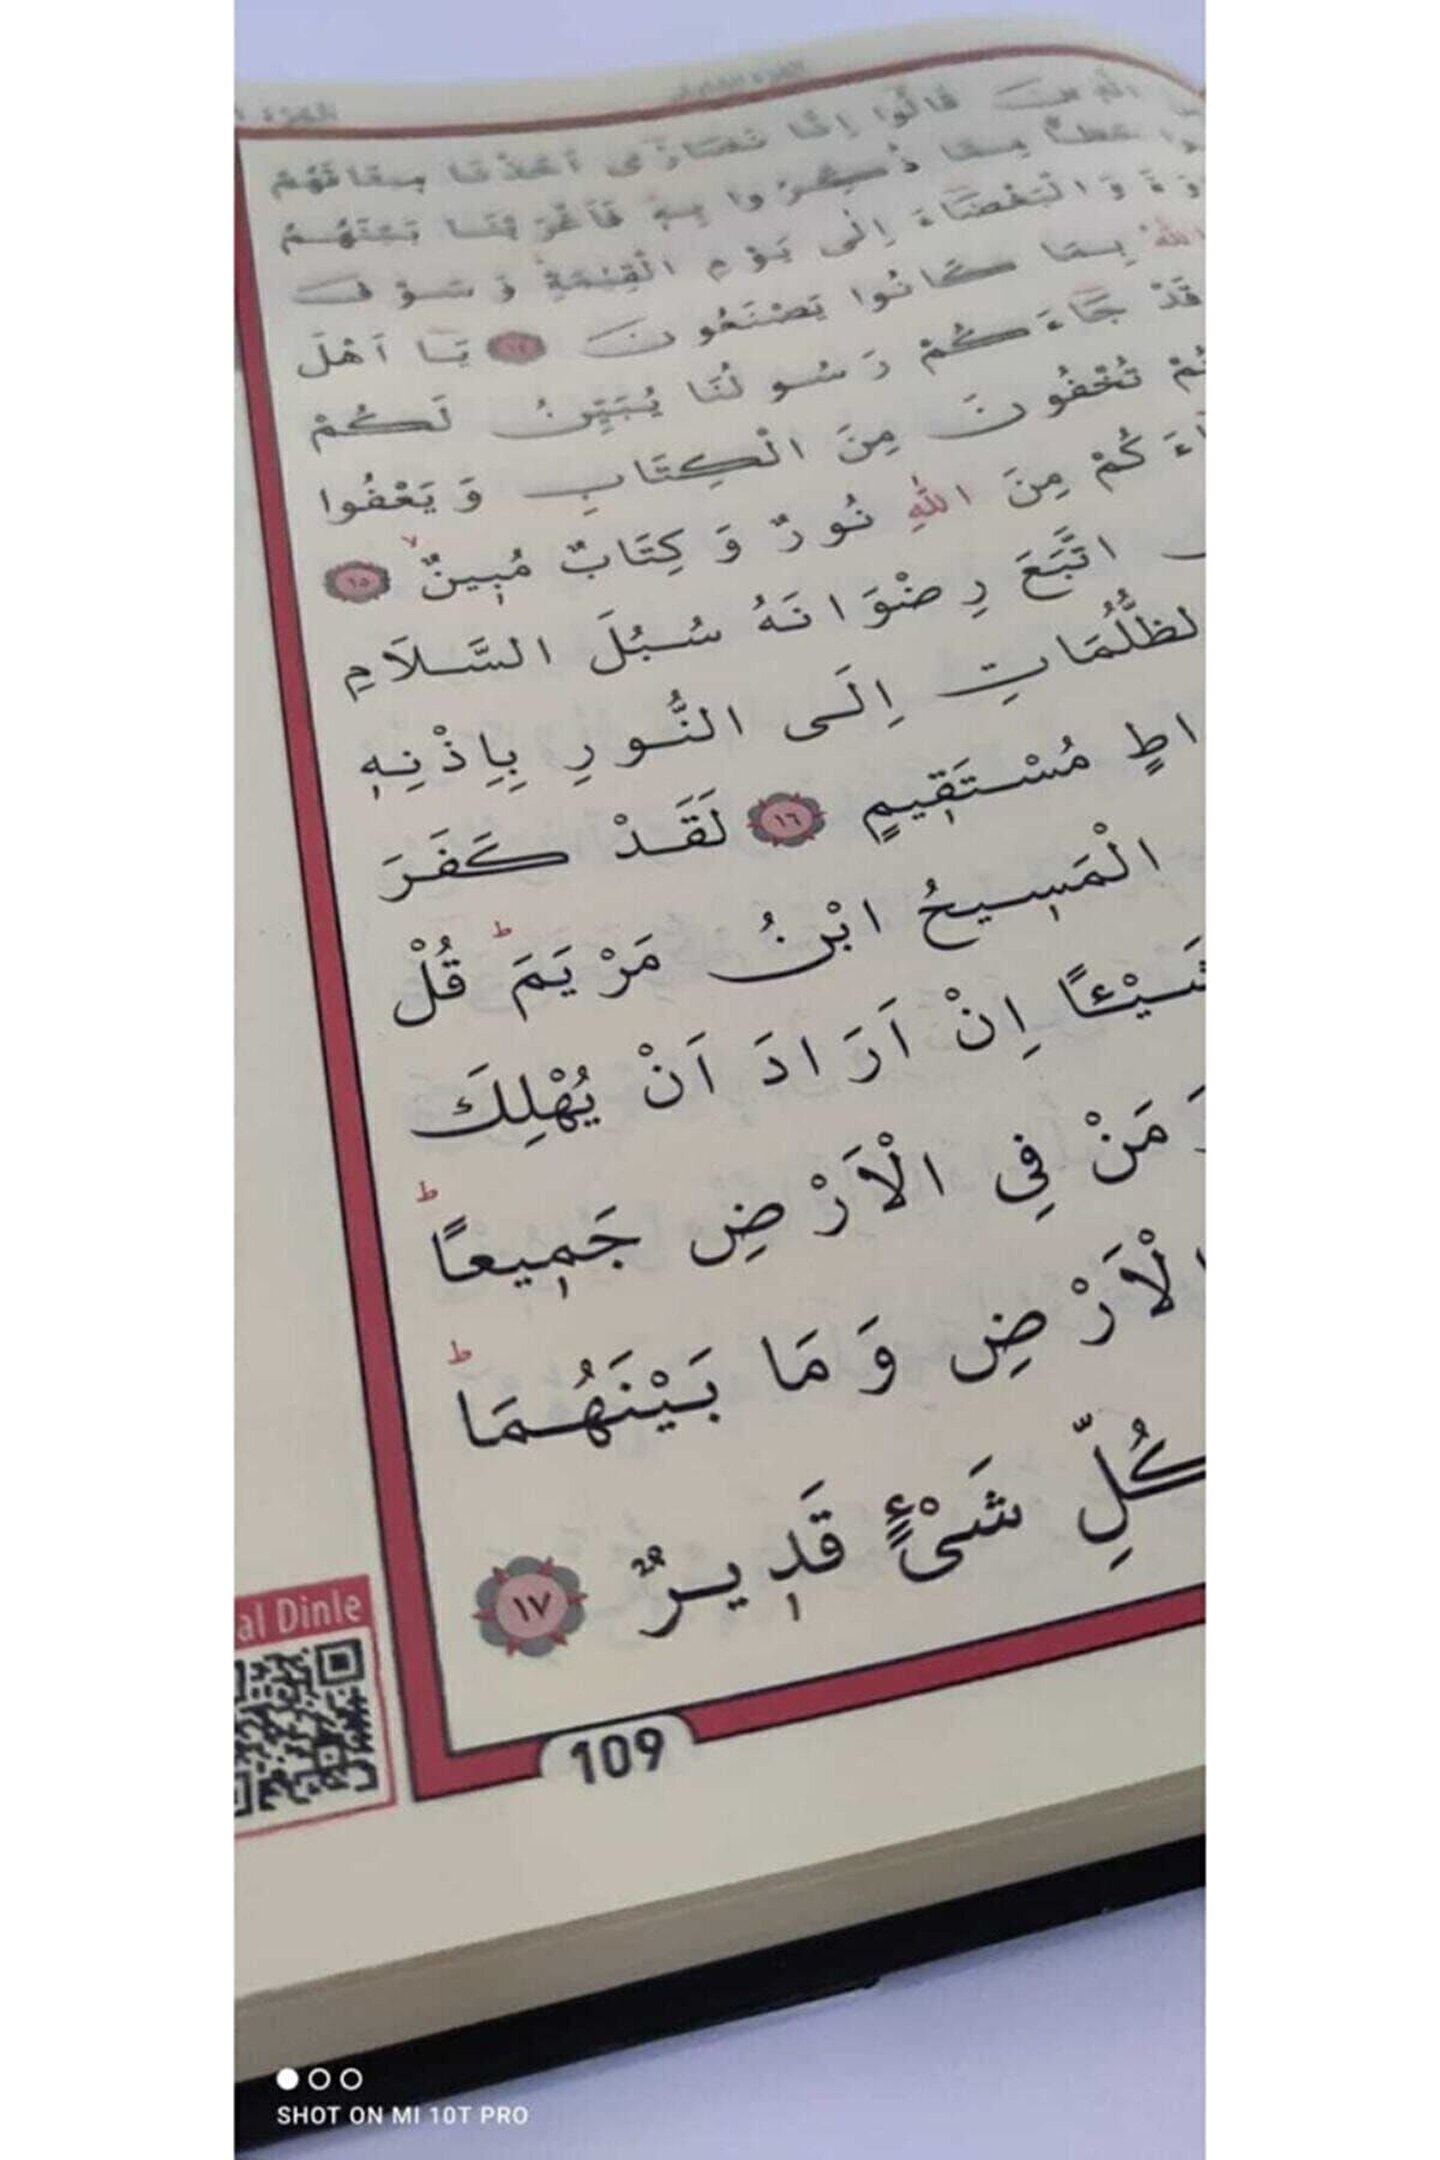 قَالُوا اِنَّا نَصَارٰى اَخَذْنَا مِيثَاقَهُمْ
حَظًّا مِمَّا ذُكِّرُوا بِهِ فَاَغْرَيْنَا بَيْنَهُمُ
وَالْبَغْضَاءَ اِلٰى يَوْمِ الْقِيٰمَةِ وَسَوْفَ
اللّٰهُ بِمَا كَانُوا يَصْنَعُونَ ١٤ يَا اَهْلَ
قَدْ جَاءَكُمْ رَسُولُنَا يُبَيِّنُ لَكُمْ
تُخْفُونَ مِنَ الْكِتَابِ وَيَعْفُوا
اءَكُمْ مِنَ اللّٰهِ نُورٌ وَكِتَابٌ مُبِينٌ ١٥
اتَّبَعَ رِضْوَانَهُ سُبُلَ السَّلَامِ
لظُّلُمَاتِ اِلَى النُّورِ بِاِذْنِهِ
اطٍ مُسْتَقِيمٍ ١٦ لَقَدْ كَفَرَ
الْمَسِيحُ ابْنُ مَرْيَمَ ط قُلْ
شَيْـًٔا اِنْ اَرَادَ اَنْ يُهْلِكَ
مَنْ فِي الْاَرْضِ جَمِيعًا ط
لْاَرْضِ وَمَا بَيْنَهُمَا ط
كُلِّ شَيْءٍ قَدِيرٌ ١٧
al Dinle
109
SHOT ON MI 10T PRO